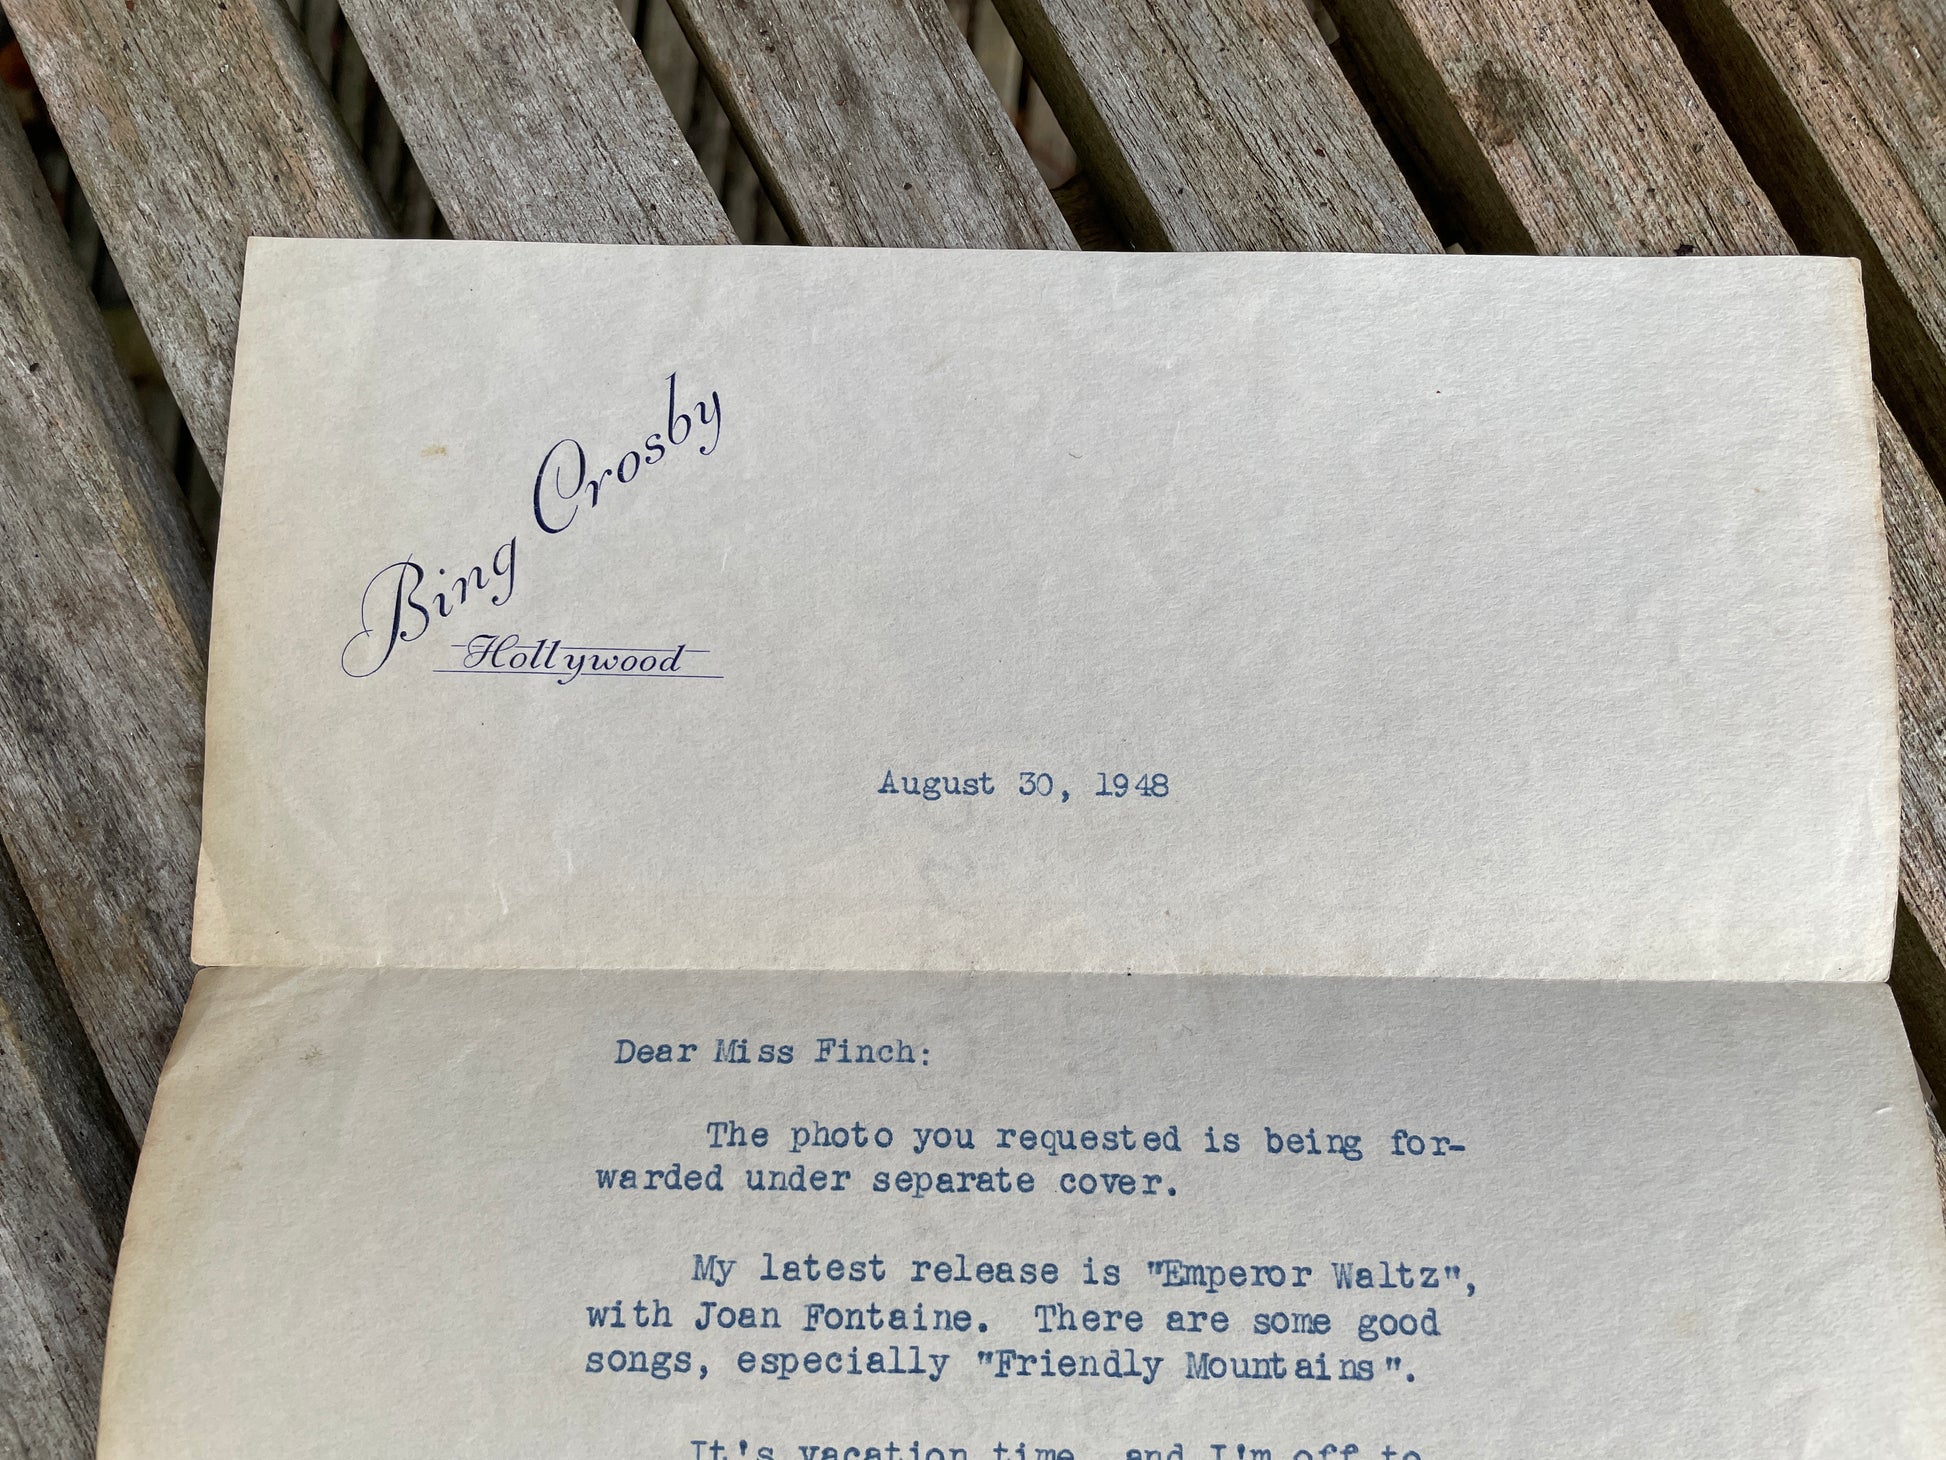 Bing Crosby
Hollywood
August 30, 1948
Dear Miss Finch:
The photo you requested is being for-
warded under separate cover.
My latest release is "Emperor Waltz",
with Joan Fontaine. There are some good
songs, especially "Friendly Mountains".
It's vacation time, and I'm off to